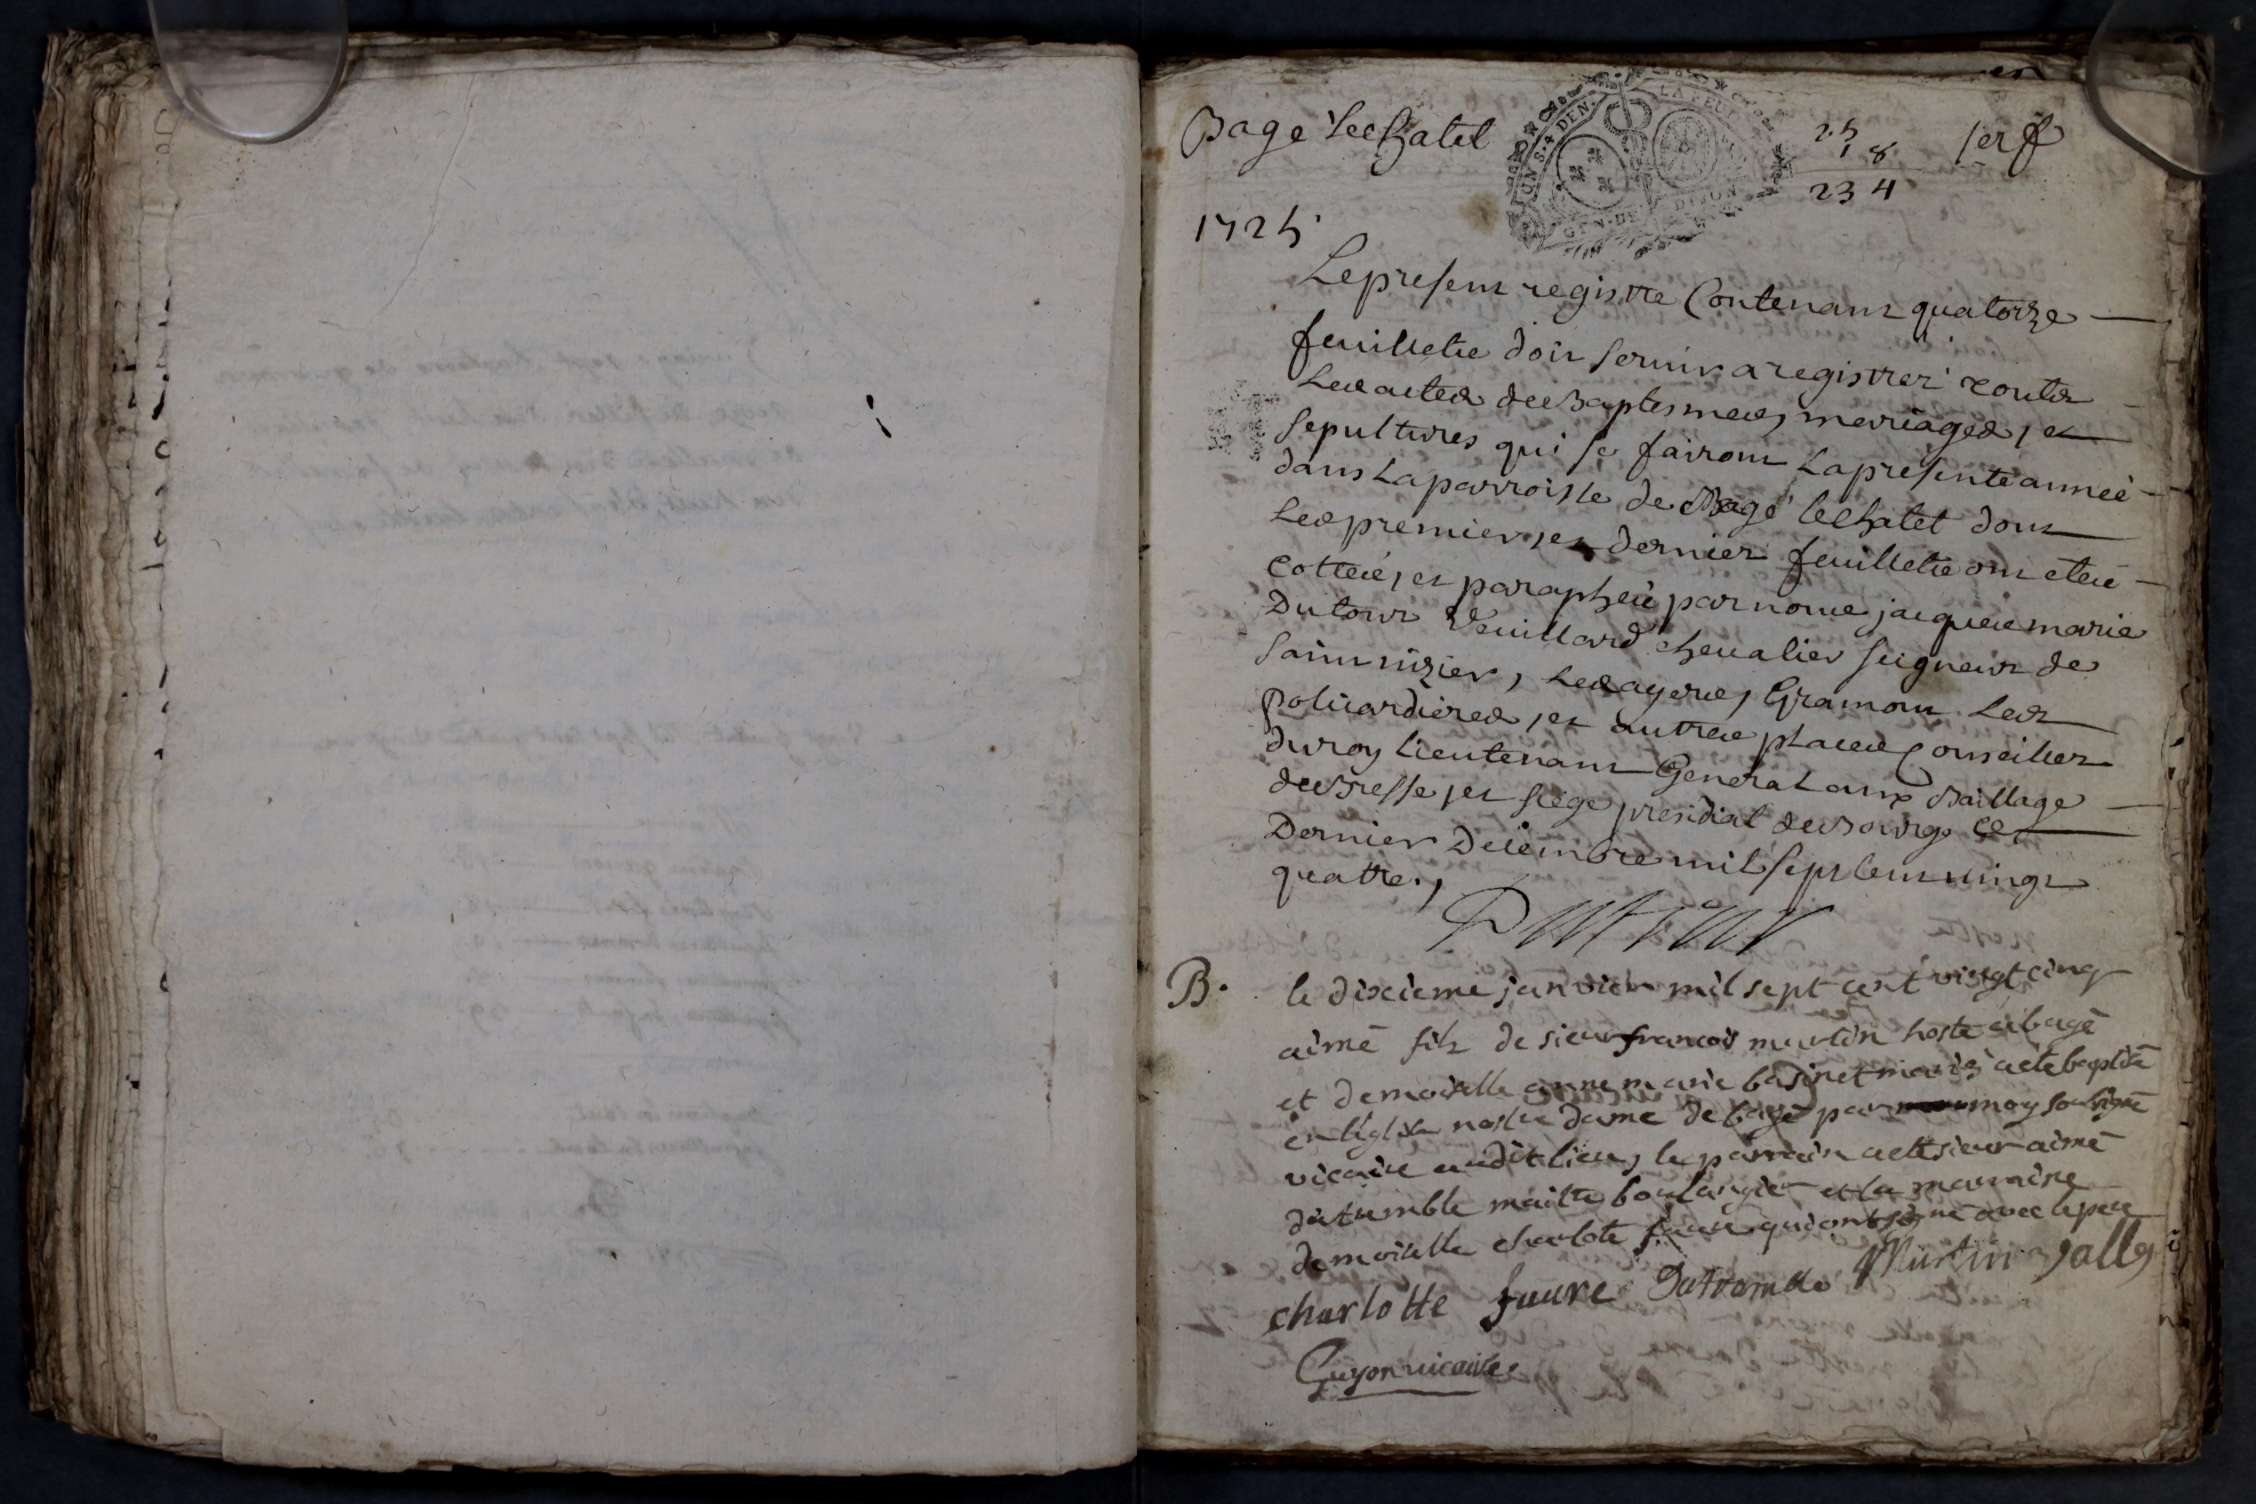 Bage Lechatel
25
18
1er f
234
1725
Le present registre Contenant quatorze
feuillets doit servir a registrer toutes
Les actes de Baptesmes, mariages, et
Sepultures qui se fairont La presente année
dans La parroisse de Bagé lechatel dont
Les premier et dernier feuillets ont etés
Cottés, et paraphés par nous jacques marie
Dutour Veuillard chevalier seigneur de
Saint nizier, , Gramont Les
, et autres places Conseiller
du roy Lieutenant General aux Baillage
de Bresse, et siege presidial de Bourg ce
Dernier Decembre mil sept cent vingt
quattre.,
B.
le dixieme janvier mil sept cent vingt cinq
aimé fils de sieur francois martin hoste a bagé
et demoiselle anne marie badinet mariés a eté baptisé
en l'eglise nostre dame de bagé par moy soubsigné
vicaire audit lieu, le parrain a eté sieur aimé
dutremble maitre boulangier et la marraine
demoiselle charlote faure qui ont signé avec le pere
charlotte faure Dutremble Martin
Guyon vicaire